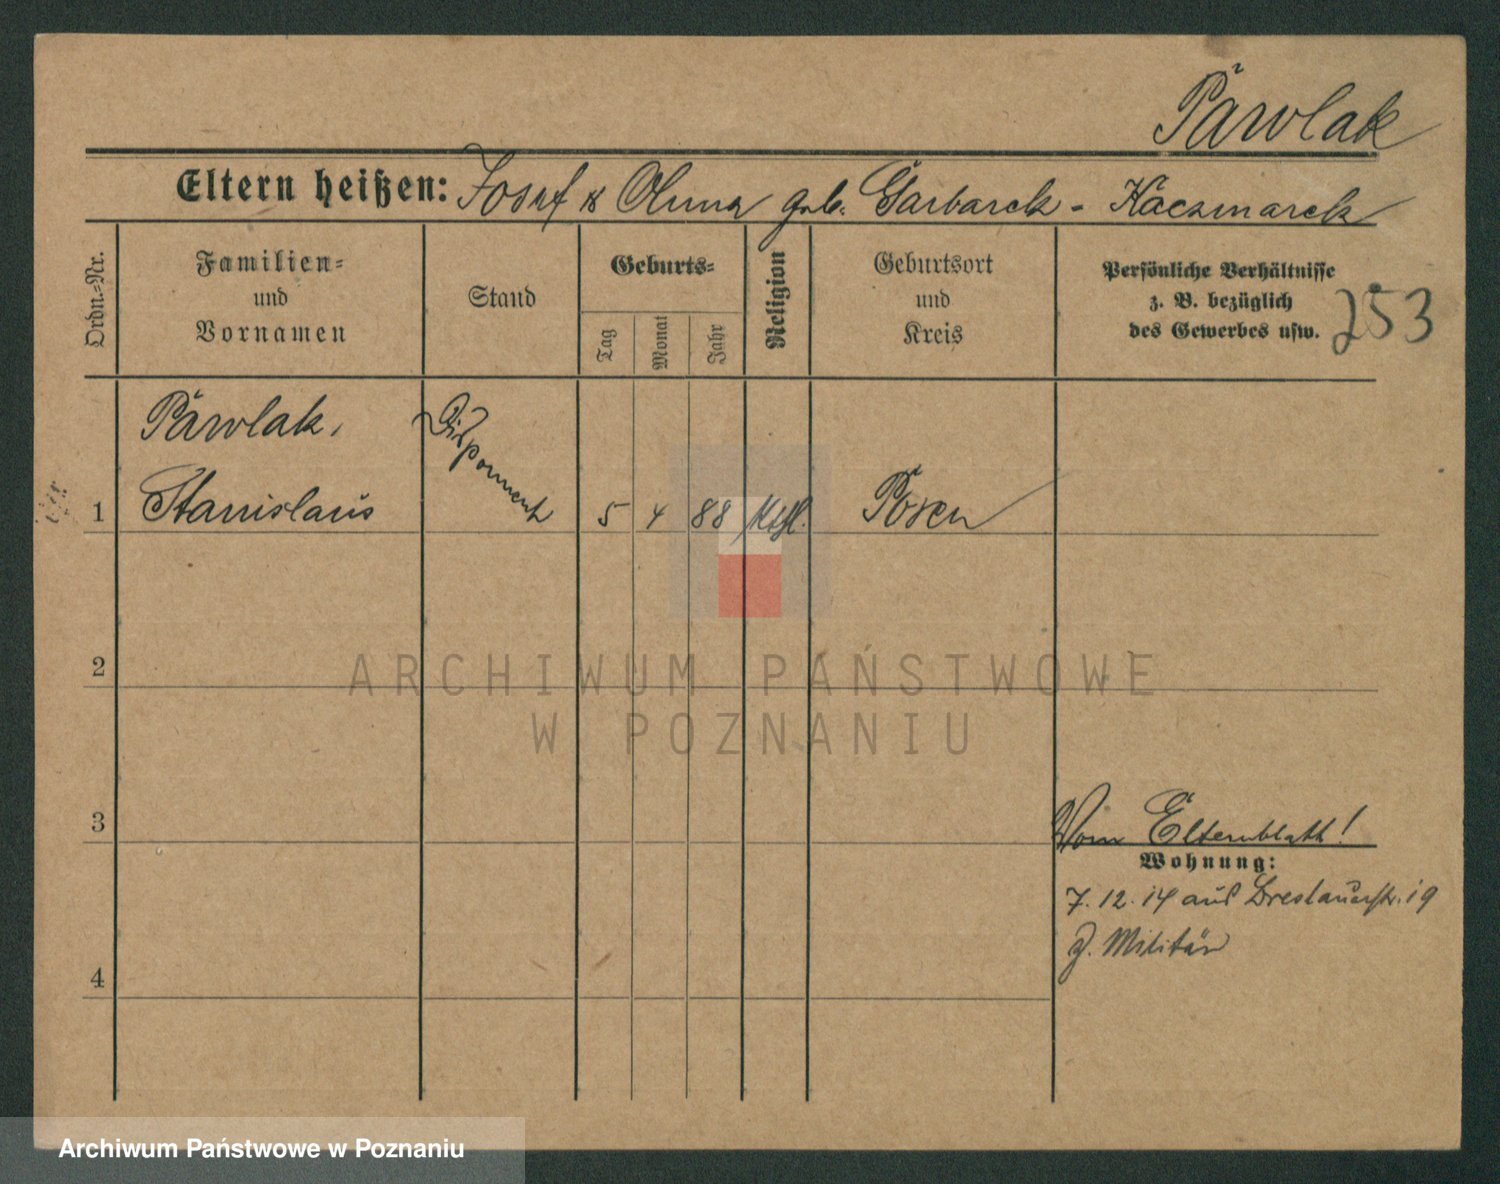 Pawlak
Eltern heißen: Josef & Anna geb. Garbarek - Kaczmarek
Ordn.-Nr.
Familien-
und
Vornamen
Stand
Geburts-
Tag
Monat
Jahr
Religion
Geburtsort
und
Kreis
Persönliche Verhältnisse
z. B. bezüglich
des Gewerbes usw.
253
Pawlak,
Disponent
1 Stanislaus 5 4 88 kthl. Posen
2
ARCHIWUM PAŃSTWOWE
W POZNANIU
3
Vom Elternblatt!
Wohnung:
7.12.14 aus Breslauerstr. 19
z. Militär
4
Archiwum Państwowe w Poznaniu